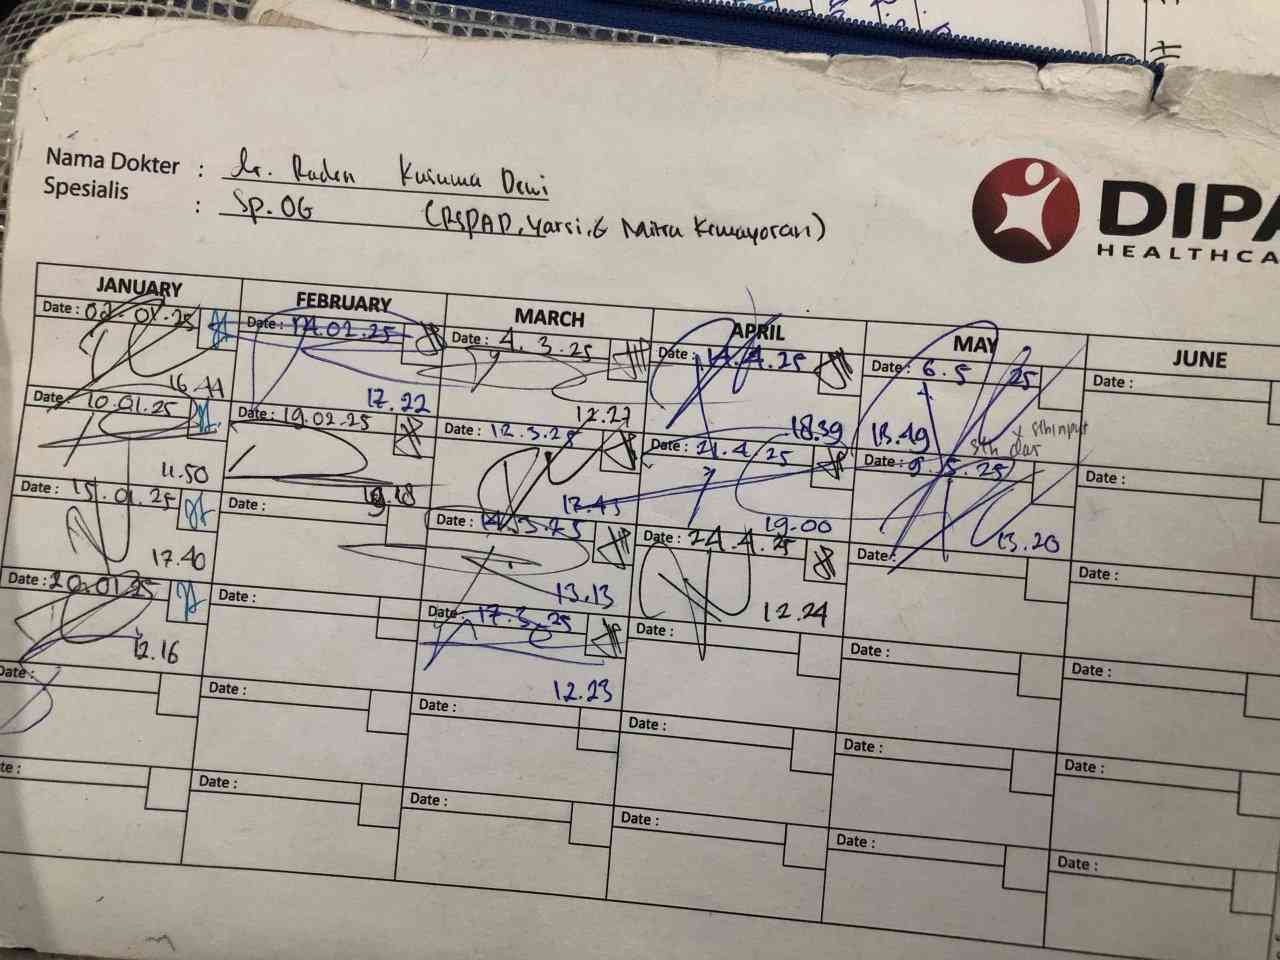 Nama Dokter : dr. Raden Kusuma Dewi
Spesialis : Sp.OG (RSPAD, Yarsi, & Mitra Kemayoran)
DIPA
HEALTHCA
JANUARY FEBRUARY MARCH APRIL MAY JUNE
Date : 02.01.25
16.44
Date : 10.01.25
11.50
Date : 15.01.25
17.40
Date : 20.01.25
12.16
Date :
te :
Date : 14.02.25
17.22
Date : 19.02.25
19.18
Date :
Date :
Date :
Date :
Date : 4.3.25
12.27
Date : 12.3.25
17.43
Date : 14.3.25
13.13
Date : 17.3.25
12.23
Date :
Date :
Date : 14.4.25
18.39
Date : 21.4.25
19.00
Date : 24.4.25
12.24
Date :
Date :
Date :
Date : 6.5 25
18.49
Date : 9.5.25
13.20
Date :
Date :
Date :
Date :
Date :
Date :
Date :
Date :
Date :
Date :